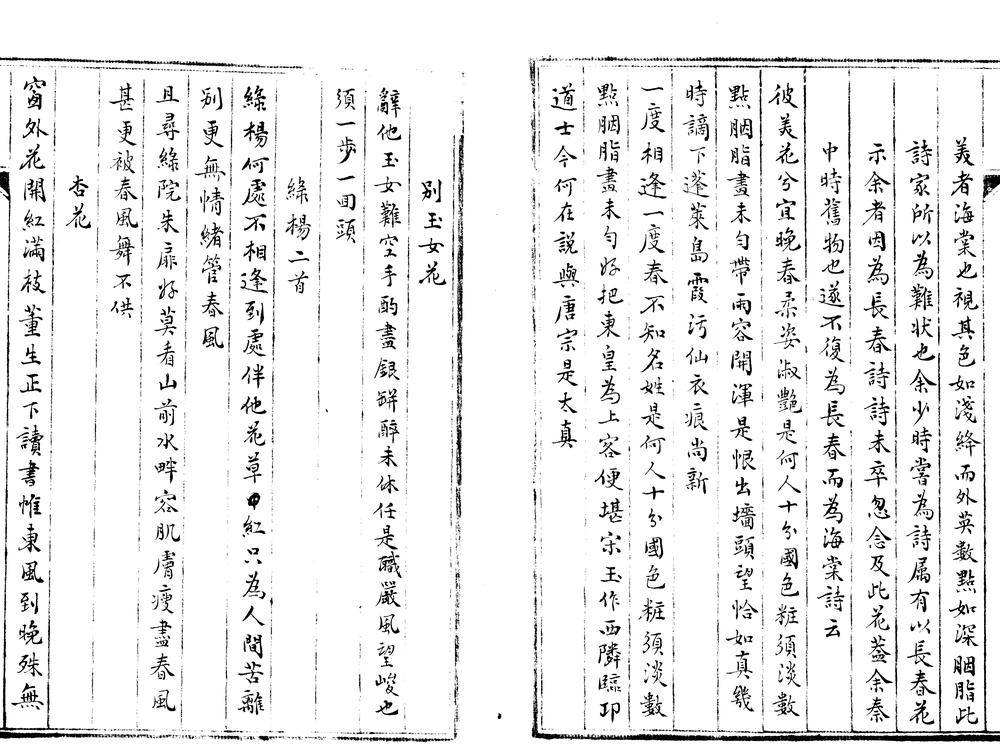 美者海棠也視其色如淺絳而外英數點如深胭脂此
詩家所以為難狀也余少時嘗為詩属有以長春花
示余者因為長春詩詩未卒忽念及此花蓋余秦
中時舊物也遂不復為長春而為海棠詩云
彼美花兮宜晚春柔姿淑艷是何人十分國色粧須淡數
點胭脂畫未勻帶雨容開渾是恨出墻頭望恰如真幾
時謫下蓬萊島霞污仙衣痕尚新
一度相逢一度春不知名姓是何人十分國色粧須淡數
點胭脂畫未勻好把東皇為上客便堪宋玉作西隣臨邛
道士今何在説與唐宗是太真
別玉女花
辭他玉女難空手酌盡銀缾醉未休任是職嚴風望峻也
須一步一回頭
綠楊二首
綠楊何處不相逢到處伴他花草紅只為人間苦離
別更無情緒管春風
且尋綠院朱扉好莫看山前水畔容肌膚瘦盡春風
甚更被春風舞不供
杏花
窗外花開紅滿枝董生正下讀書帷東風到晚殊無